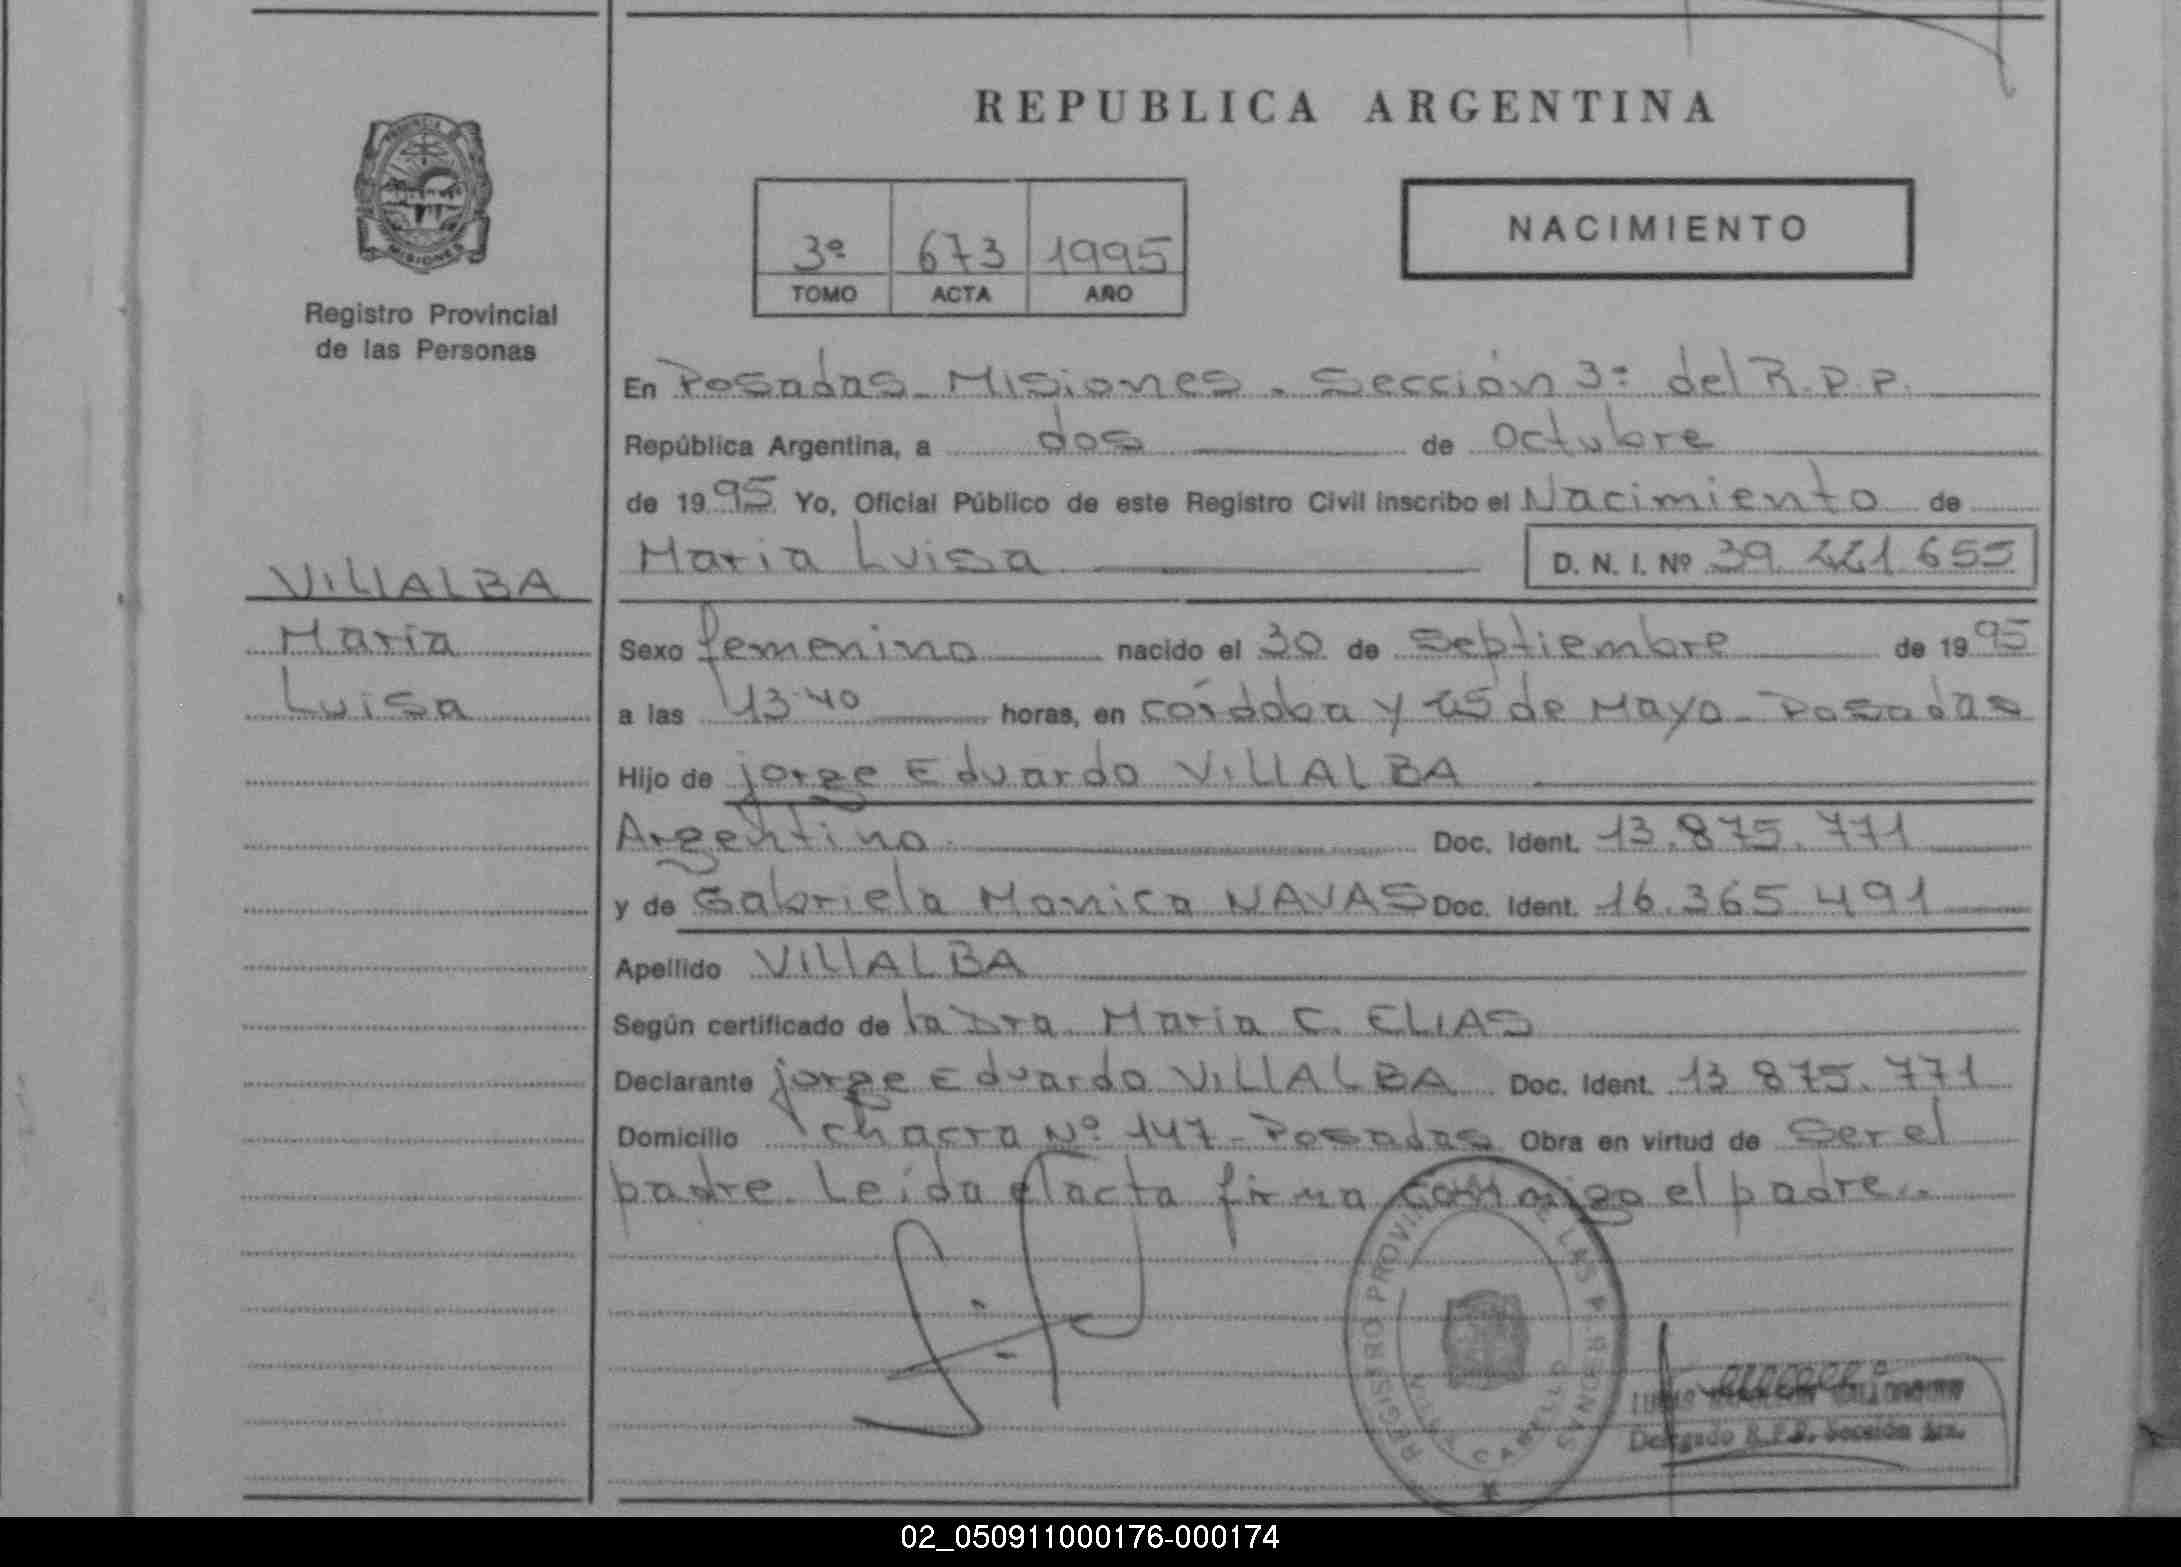 REPUBLICA ARGENTINA
PROVINCIA
MISIONES
Registro Provincial
de las Personas
3º 673 1995
TOMO ACTA AÑO
NACIMIENTO
En Posadas - Misiones - Sección 3º del R.P.P.
República Argentina, a dos de Octubre
de 1995 Yo, Oficial Público de este Registro Civil inscribo el Nacimiento de
Maria Luisa D. N. I. Nº 39. 221.655
VILLALBA
Maria
Luisa
Sexo femenino nacido el 30 de Septiembre de 1995
a las 13:40 horas, en Córdoba y 25 de Mayo - Posadas
Hijo de Jorge Eduardo VILLALBA
Argentino Doc. Ident. 13.875.771
y de Gabriela Monica NAVAS Doc. Ident. 16.365.491
Apellido VILLALBA
Según certificado de la Dra Maria C. ELIAS
Declarante Jorge Eduardo VILLALBA Doc. Ident. 13 875.771
Domicilio chacra Nº 147 - Posadas Obra en virtud de Ser el
padre. Leída el acta firma conmigo el padre..
REGISTRO PROVINCIAL DE LAS PERSONAS
VILLA CABELLO
Delegado R.P.P. Sección 3ra.
02_050911000176-000174